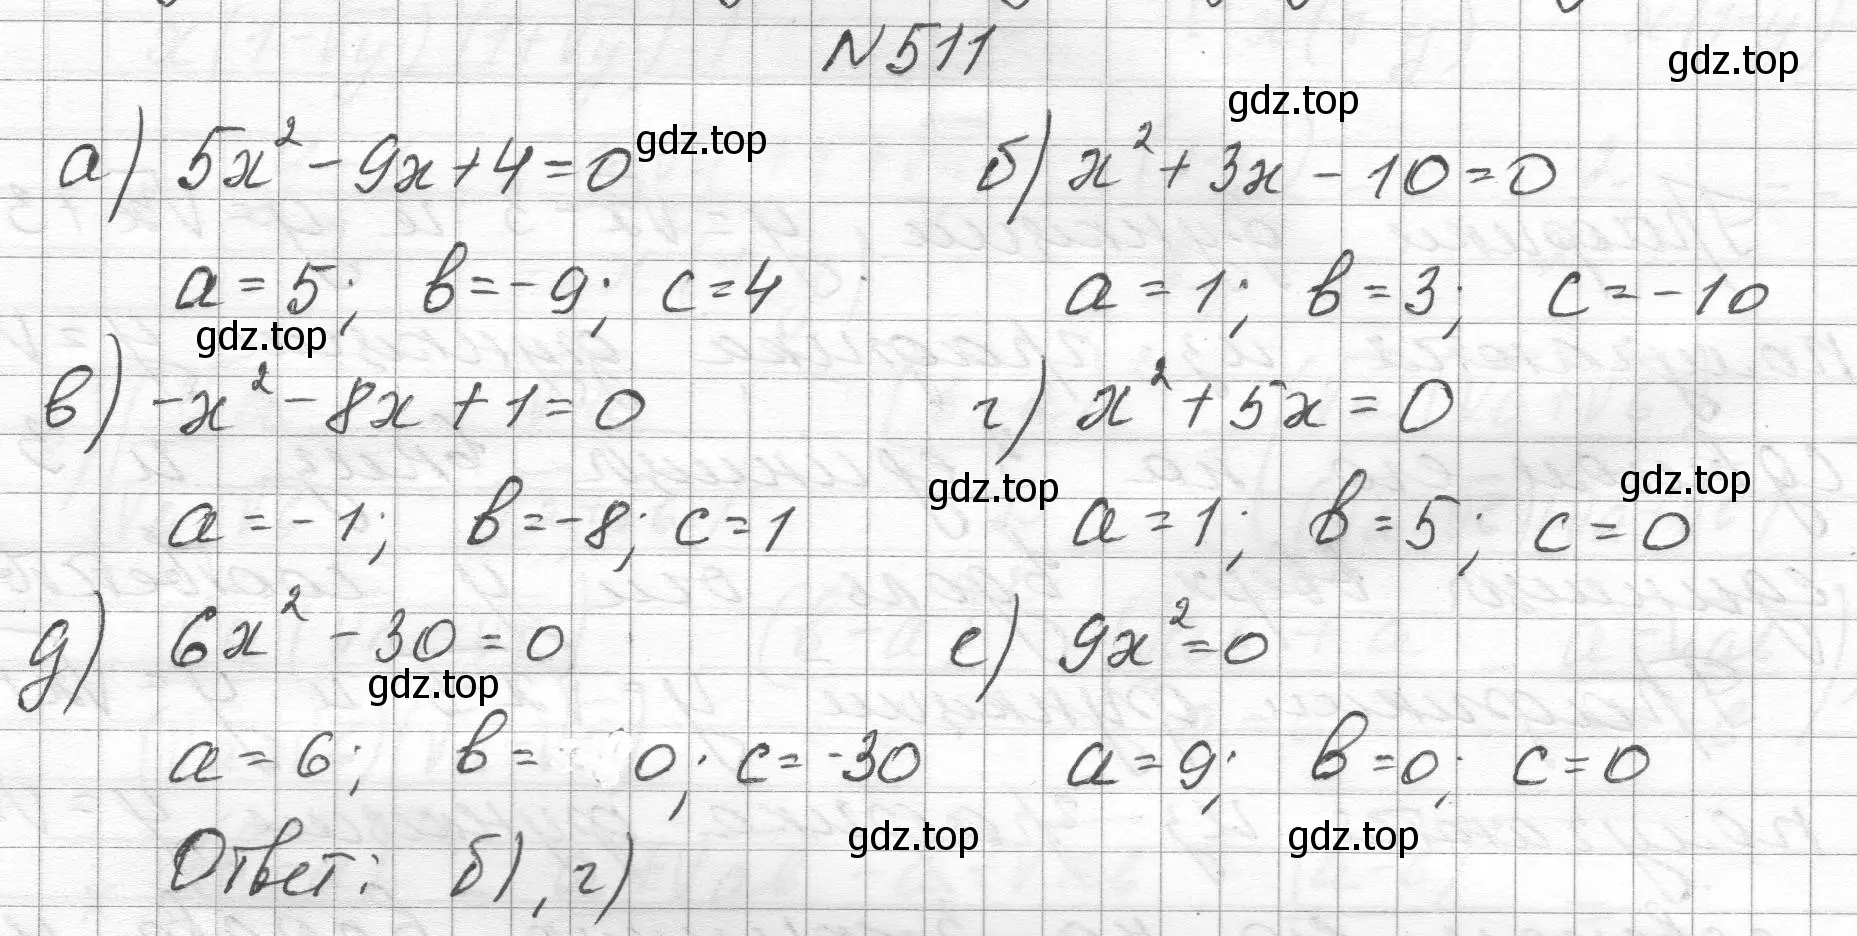 N511
gdz.top
gdz.top
а) 5x² - 9x + 4 = 0 gdz.top
б) x² + 3x - 10 = 0
a = 5; в = -9; c = 4
a = 1; в = 3; c = -10
gdz.top
в) -x² - 8x + 1 = 0
г) x² + 5x = 0
gdz.top
gdz.top
a = -1; в = -8; c = 1
a = 1; в = 5; c = 0
д) 6x² - 30 = 0
е) 9x² = 0
gdz.top
a = 6; в = 0; c = -30
a = 9; в = 0; c = 0
gdz.top
gdz.top
Ответ: б), г)